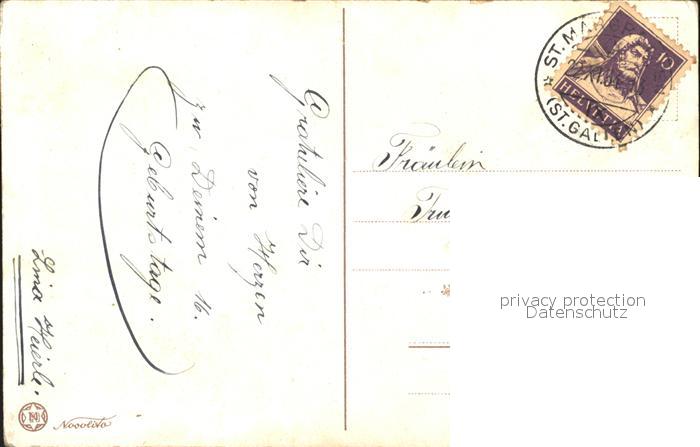 Gratuliere Dir
von Herzen
zu Deinem 16.
Geburtstage.
Lina Heierle.
Novolito
Fräulein
10
HELVETIA
ST. MA
(ST. GALLEN)
privacy protection
Datenschutz